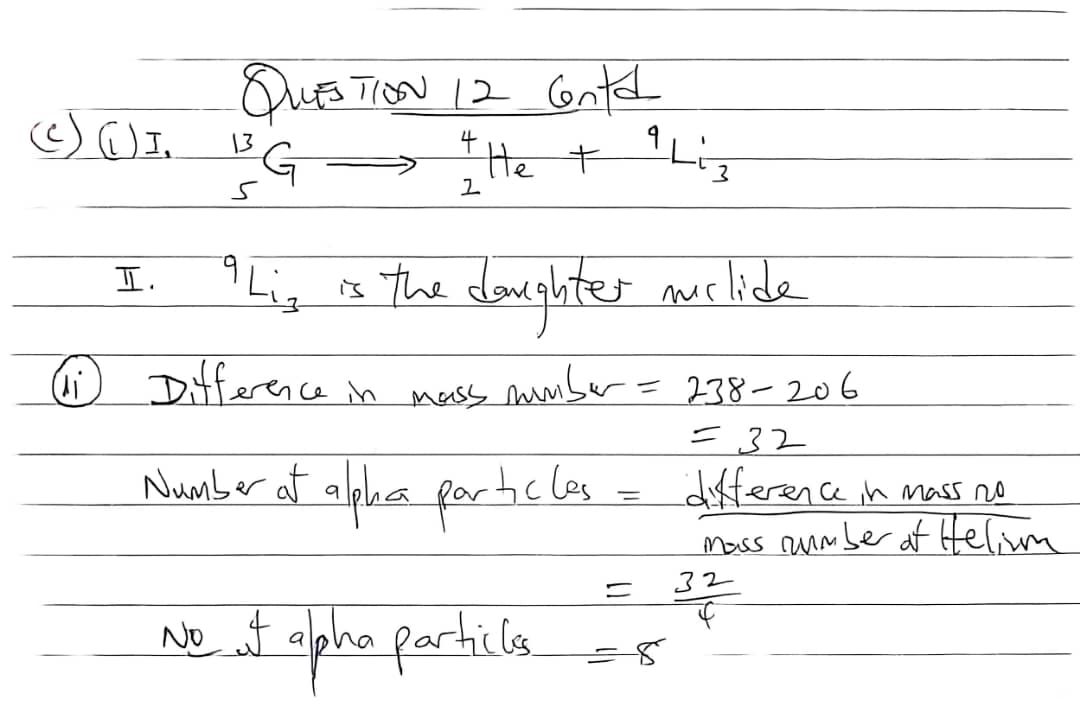 QUESTION 12 Contd
(c) (i) I. ¹³₅G → ⁴₂He + ⁹Li₃
II. ⁹Li₃ is the daughter nuclide
(ii) Difference in mass number = 238 - 206
= 32
Number of alpha particles = difference in mass no
mass number of Helium
= 32
4
No of alpha particles = 8